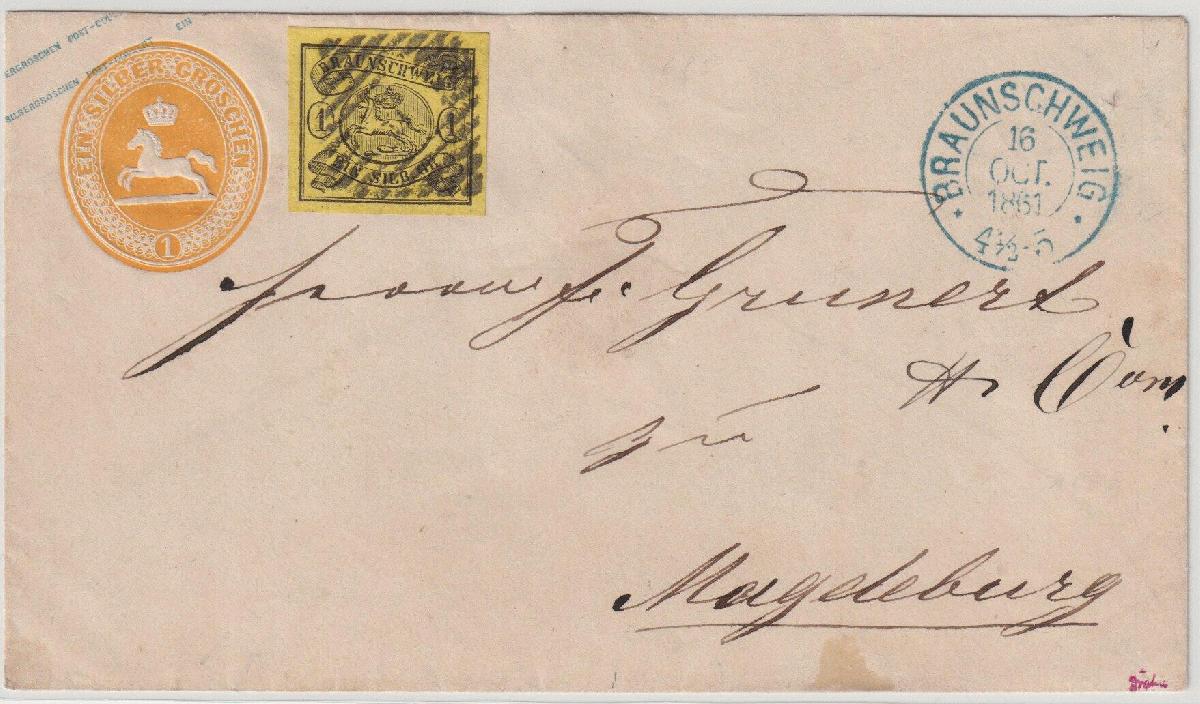 ERGROSCHEN POST-COUVERT EIN
SILBERGROSCHEN POST-COUVERT
EIN SILBER GROSCHEN
1
BRAUNSCHWEIG
1 1
EIN SILB. GR.
BRAUNSCHWEIG
16
OCT.
1861
4½-5
Grunert
zu
Magdeburg